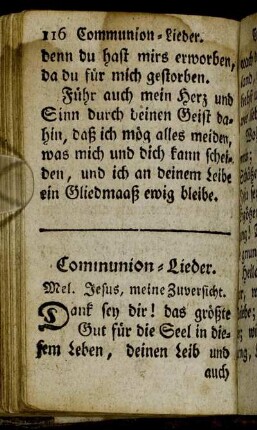 116 Communion-Lieder.
denn du hast mirs erworben,
da du für mich gestorben.
Führ auch mein Herz und
Sinn durch deinen Geist da-
hin, daß ich mög alles meiden,
was mich und dich kann schei-
den, und ich an deinem Leibe
ein Gliedmaaß ewig bleibe.
Communion-Lieder.
Mel. Jesus, meine Zuversicht.
Dank sey dir! das größte
Gut für die Seel in die-
sem Leben, deinen Leib und
auch